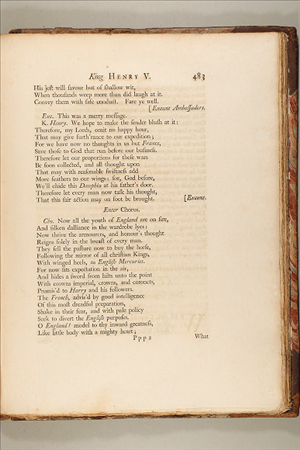 King HENRY V. 483
His jest will savour but of shallow wit,
When thousands weep more than did laugh at it.
Convey them with safe conduct. Fare ye well.
[Exeunt Ambassadors.
Exe. This was a merry message.
K. Henry. We hope to make the sender blush at it:
Therefore, my Lords, omit no happy hour,
That may give furth'rance to our expedition;
For we have now no thoughts in us but France,
Save those to God that run before our business.
Therefore let our proportions for these wars
Be soon collected, and all thought upon
That may with reasonable swiftness add
More feathers to our wings: for, God before,
We'll chide this Dauphin at his father's door.
Therefore let every man now task his thought,
That this fair action may on foot be brought. [Exeunt.
Enter Chorus.
Cho. Now all the youth of England are on fire,
And silken dalliance in the wardrobe lyes:
Now thrive the armourers, and honour's thought
Reigns solely in the breast of every man.
They sell the pasture now to buy the horse,
Following the mirror of all christian Kings,
With winged heels, as English Mercuries.
For now sits expectation in the air,
And hides a sword from hilts unto the point
With crowns imperial, crowns, and coronets,
Promis'd to Harry and his followers.
The French, advis'd by good intelligence
Of this most dreadful preparation,
Shake in their fear, and with pale policy
Seek to divert the English purposes.
O England! model to thy inward greatness,
Like little body with a mighty heart;
P p p 2 What